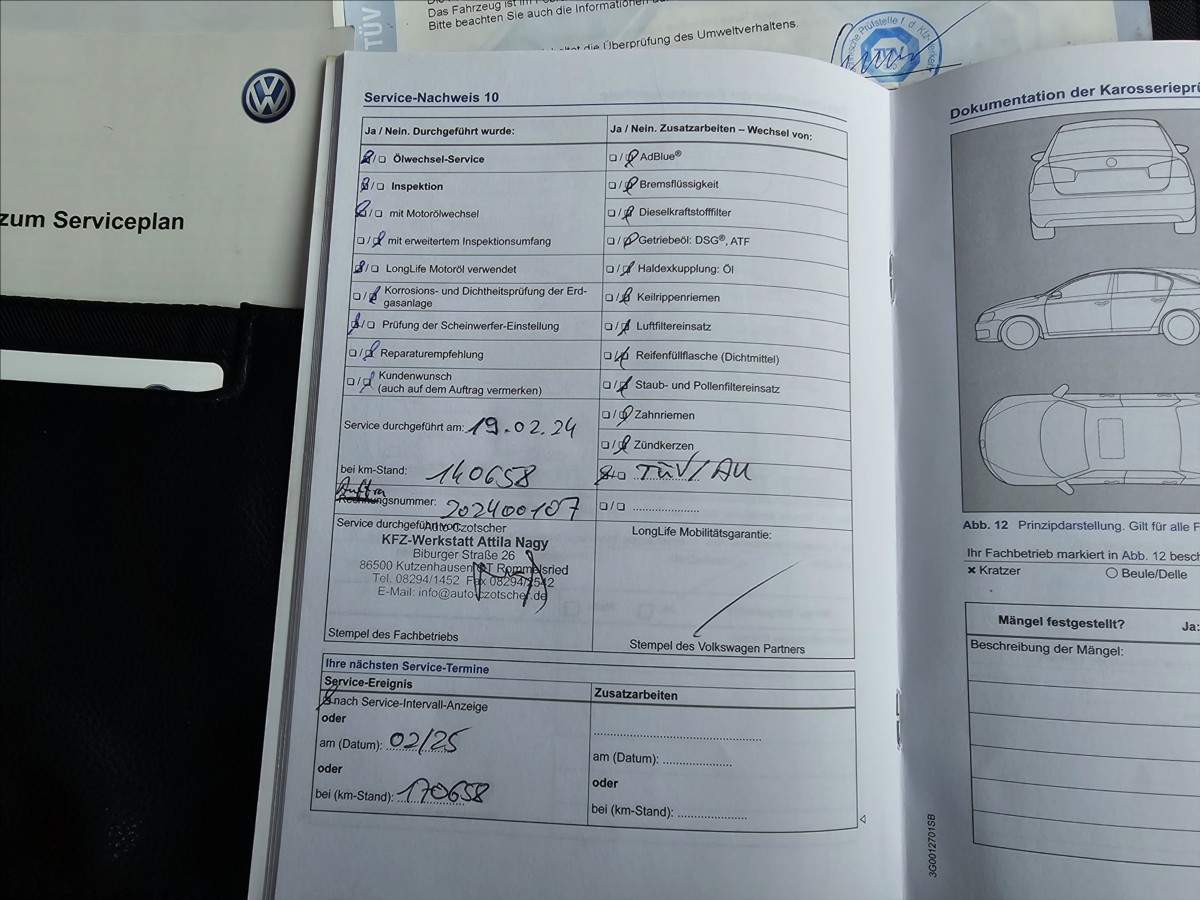 TÜV
Das Fahrzeug ist im
Bitte beachten Sie auch die Informationen
die Überprüfung des Umweltverhaltens.
VW
zum Serviceplan
Service-Nachweis 10
Ja / Nein. Durchgeführt wurde:
Ölwechsel-Service
Inspektion
mit Motorölwechsel
mit erweitertem Inspektionsumfang
LongLife Motoröl verwendet
Korrosions- und Dichtheitsprüfung der Erd-
gasanlage
Prüfung der Scheinwerfer-Einstellung
Reparaturempfehlung
Kundenwunsch
(auch auf dem Auftrag vermerken)
Service durchgeführt am: 19.02.24
bei km-Stand: 140658
Auftra
Rechnungsnummer: 202400107
Service durchgeführt von:
Auto Czotscher
KFZ-Werkstatt Attila Nagy
Biburger Straße 26
86500 Kutzenhausen OT Rommelsried
Tel. 08294/1452 Fax 08294/2542
E-Mail: info@auto-czotscher.de
Stempel des Fachbetriebs
Ja / Nein. Zusatzarbeiten – Wechsel von:
AdBlue®
Bremsflüssigkeit
Dieselkraftstofffilter
Getriebeöl: DSG®, ATF
Haldexkupplung: Öl
Keilrippenriemen
Luftfiltereinsatz
Reifenfüllflasche (Dichtmittel)
Staub- und Pollenfiltereinsatz
Zahnriemen
Zündkerzen
TÜV/AU
LongLife Mobilitätsgarantie:
Stempel des Volkswagen Partners
Ihre nächsten Service-Termine
Service-Ereignis
nach Service-Intervall-Anzeige
oder
am (Datum): 02/25
oder
bei (km-Stand): 170658
Zusatzarbeiten
am (Datum):
oder
bei (km-Stand):
3G0012701SB
Dokumentation der Karosserieprü
Abb. 12 Prinzipdarstellung. Gilt für alle F
Ihr Fachbetrieb markiert in Abb. 12 besch
× Kratzer
Beule/Delle
Mängel festgestellt?
Ja:
Beschreibung der Mängel: